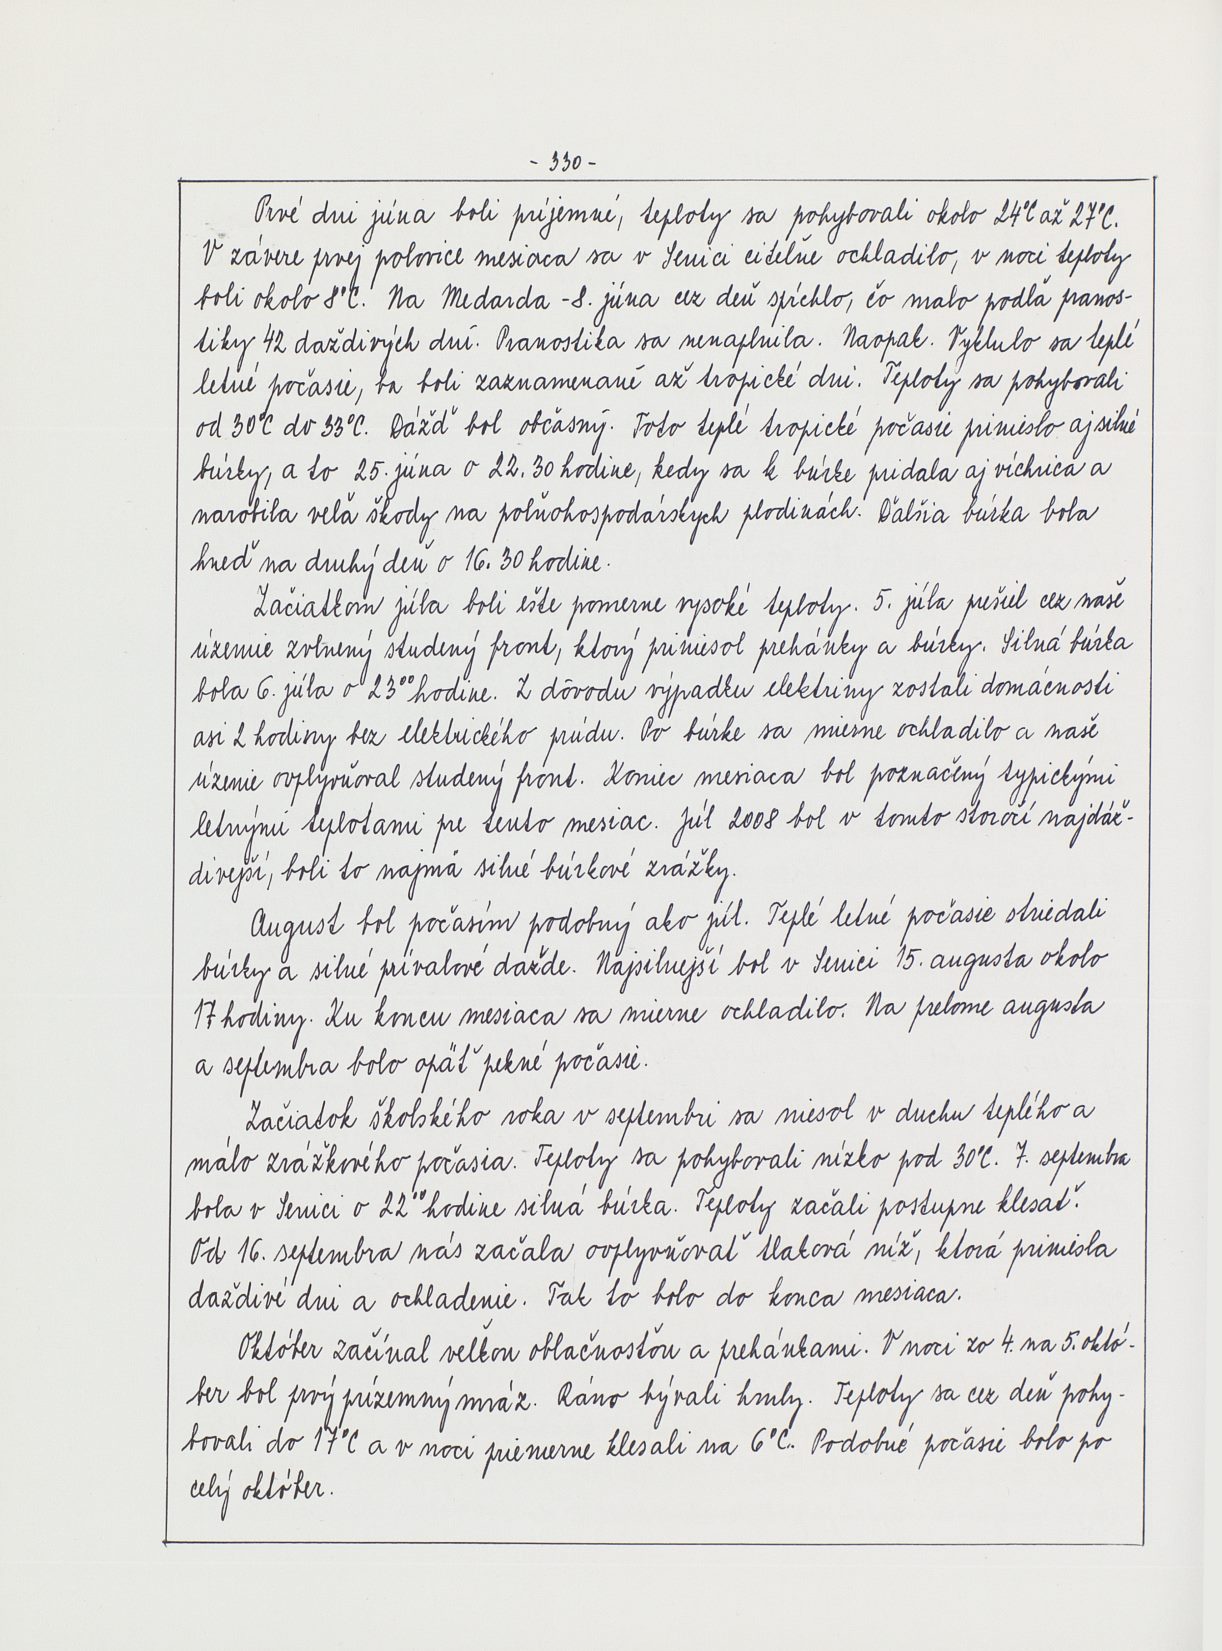 - 330 -
Prvé dni júna boli príjemné, teploty sa pohybovali okolo 24°C až 27°C.
V závere prvej polovice mesiaca sa v Senici citeľne ochladilo, v noci teploty
boli okolo 8°C. Na Medarda - 8. júna cez deň spŕchlo, čo malo podľa pranos-
tiky 42 daždivých dní. Pranostika sa nenaplnila. Naopak. Vykľulo sa teplé
letné počasie, ba boli zaznamenané až tropické dni. Teploty sa pohybovali
od 30°C do 33°C. Dážď bol občasný. Toto teplé tropické počasie prinieslo aj silné
búrky, a to 25. júna o 22.30 hodine, kedy sa k búrke pridala aj víchrica a
narobila veľa škody na poľnohospodárskych plodinách. Ďalšia búrka bola
hneď na druhý deň o 16.30 hodine.
Začiatkom júla boli ešte pomerne vysoké teploty. 5. júla prešiel cez naše
územie zvlnený studený front, ktorý priniesol prehánky a búrky. Silná búrka
bola 6. júla o 23⁰⁰ hodine. Z dôvodu výpadku elektriny zostali domácnosti
asi 2 hodiny bez elektrického prúdu. Po búrke sa mierne ochladilo a naše
územie ovplyvňoval studený front. Koniec mesiaca bol poznačený typickými
letnými teplotami pre tento mesiac. Júl 2008 bol v tomto storočí najdáž-
divejší, boli to najmä silné búrkové zrážky.
August bol počasím podobný ako júl. Teplé letné počasie striedali
búrky a silné prívalové dažde. Najsilnejší bol v Senici 15. augusta okolo
17 hodiny. Ku koncu mesiaca sa mierne ochladilo. Na prelome augusta
a septembra bolo opäť pekné počasie.
Začiatok školského roka v septembri sa niesol v duchu teplého a
málo zrážkového počasia. Teploty sa pohybovali nízko pod 30°C. 7. septembra
bola v Senici o 22⁰⁰ hodine silná búrka. Teploty začali postupne klesať.
Od 16. septembra nás začala ovplyvňovať tlaková níž, ktorá priniesla
daždivé dni a ochladenie. Tak to bolo do konca mesiaca.
Október začínal veľkou oblačnosťou a prehánkami. V noci zo 4. na 5. októ-
ber bol prvý prízemný mráz. Ráno bývali hmly. Teploty sa cez deň pohy-
bovali do 17°C a v noci priemerne klesali na 6°C. Podobné počasie bolo po
celý október.